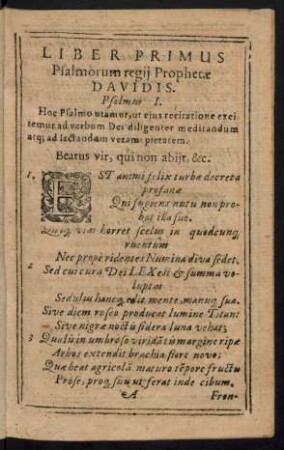 LIBER PRIMUS
Psalmorum regij Prophetæ
DAVIDIS.
Psalmus I.
Hoc Psalmo utamur, ut ejus recitatione exci
temur ad verbum Dei diligenter meditandum
atq; ad sectandam veram pietatem.
Beatus vir, qui non abijt, &c.
1. EST animi felix turbæ decreta
profanæ
Qui fugiens nutu non pro-
bat illa suo.
Quiq; vias horret scelus in quodcunq;
ruentum
Nec prope ridentes Numina diva sedet.
2 Sed cui cura Dei LEX est & summa vo-
luptas
Sedulus hancq; edit mente, manuq; sua.
Sive diem roseo producat lumine Titan
Sive nigræ noctu sidera luna vehat;
3 Qualis in umbroso viridãti margine ripæ
Arbos extendit brachia flore novo;
Quæ beat agricolã maturo tẽpore fructu
Prôse; proq; suû ut ferat inde cibum.
A Fron-